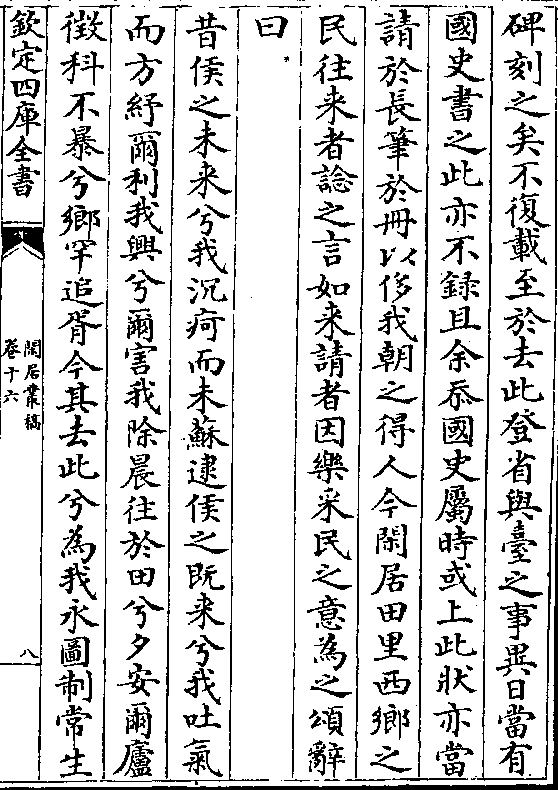 碑刻之矣不復載至於去此登省與臺之事異日當有
國史書之此亦不録且余忝國史屬時或上此狀亦當
請於長筆於冊以侈我朝之得人今閑居田里西鄉之
民往来者諗之言如来請者因樂采民之意為之頌辭
曰
昔侯之未来兮我沉疴而未蘇逮侯之既来兮我吐氣
而方紓爾利我興兮爾害我除晨往於田兮夕安爾廬
徴科不暴兮鄉罕追胥今其去此兮為我永圖制常生
欽定四庫全書
閑居叢稿
卷十六
八